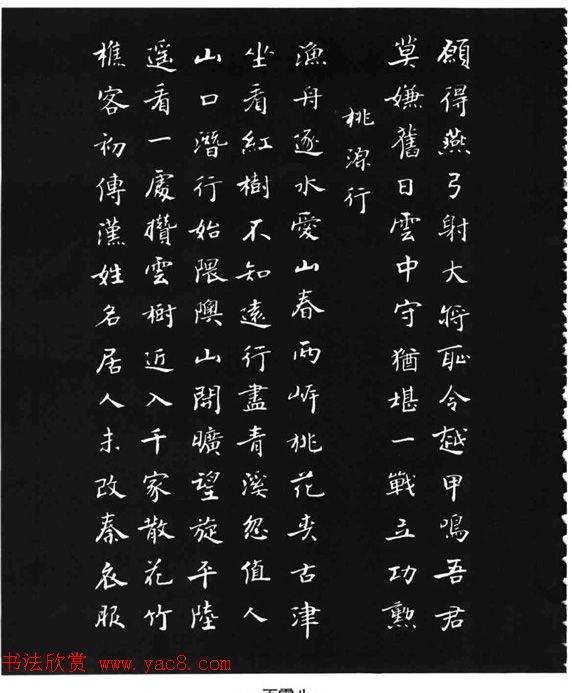 願得燕弓射大將恥令越甲鳴吾君
莫嫌舊日雲中守猶堪一戰立功勳
桃源行
漁舟逐水愛山春兩岸桃花夾古津
坐看紅樹不知遠行盡青溪忽值人
山口潛行始隈隩山開曠望旋平陸
遥看一處攢雲樹近入千家散花竹
樵客初傳漢姓名居人未改秦衣服
书法欣赏 www.yac8.com